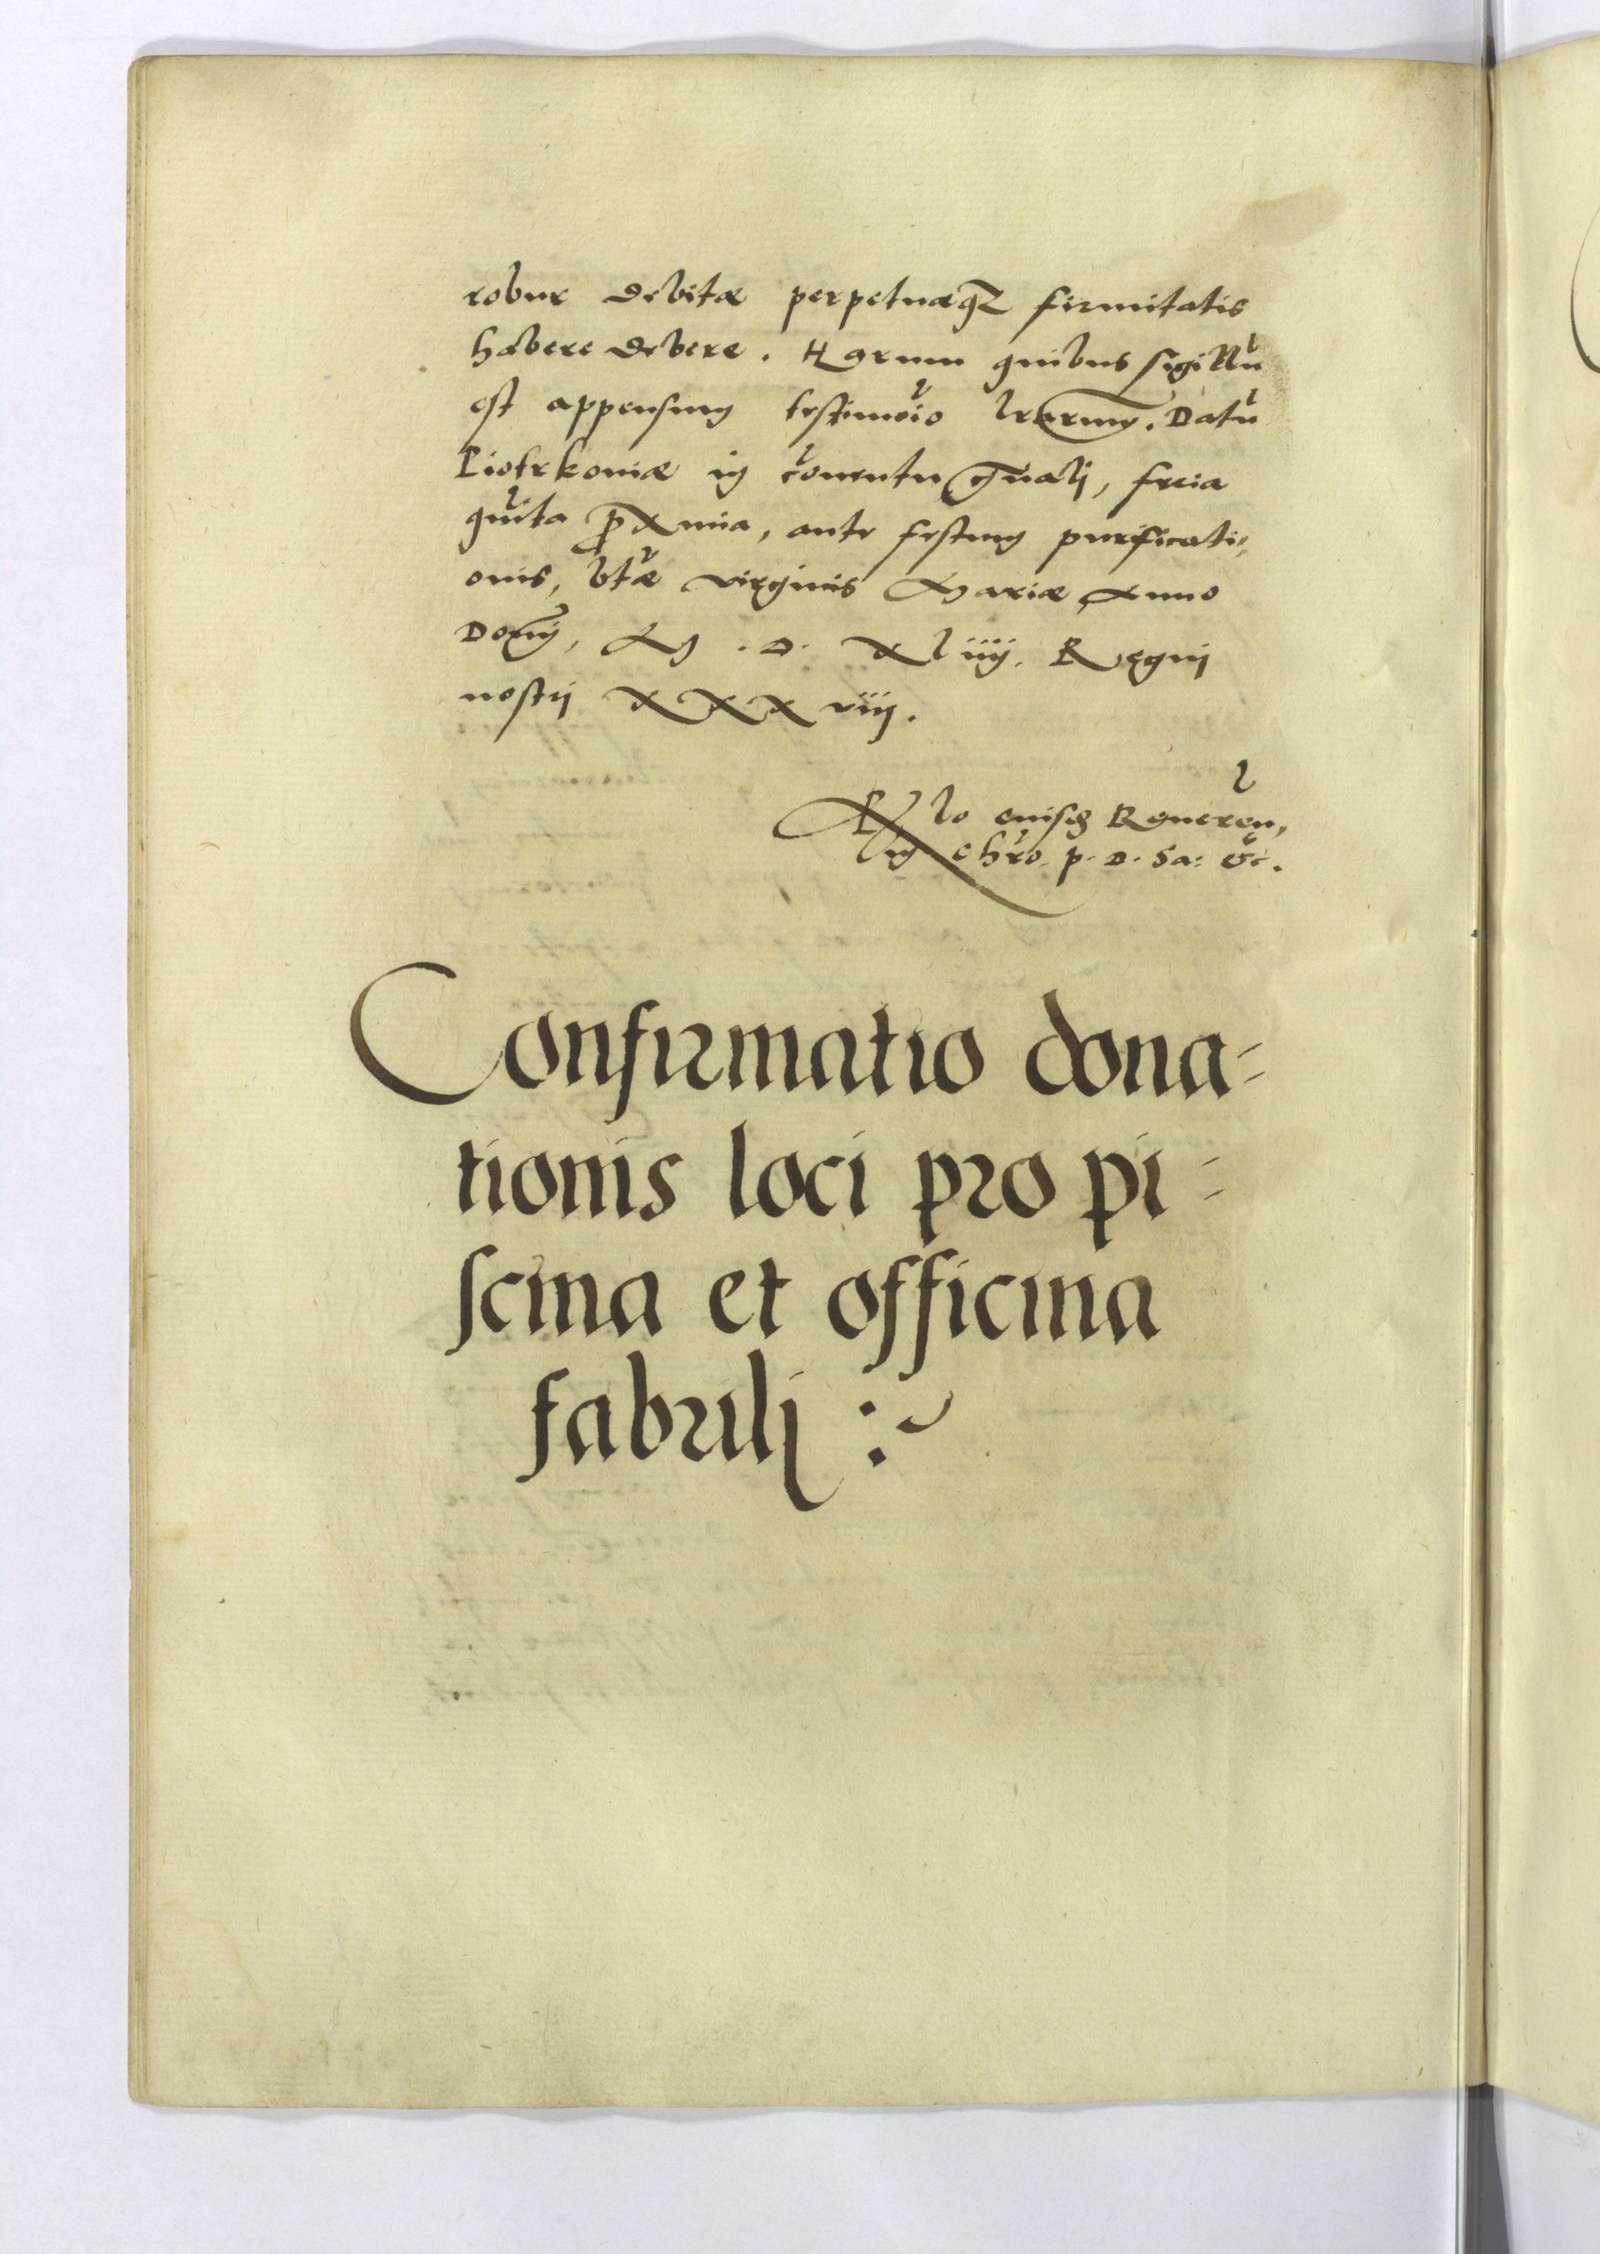 robur debitæ perpetuæq₃ firmitatis
habere debere. Harum quibus sigillū
est appensum testimōio lrarum. Datū
Piotrkoviæ in cōventu gn̄ali, feria
quīta px̄imia, ante festum purificati=
onis, btǣ virginis Mariæ Anno
Domı̄, M .D. xliiij. Regni
nostrj xxxviij.
Ad lo eiusd Reveren,
in chro. p. D. Sa: &c.
Confirmatio dona-
tionis loci pro pi-
scina et officina
fabrili :~